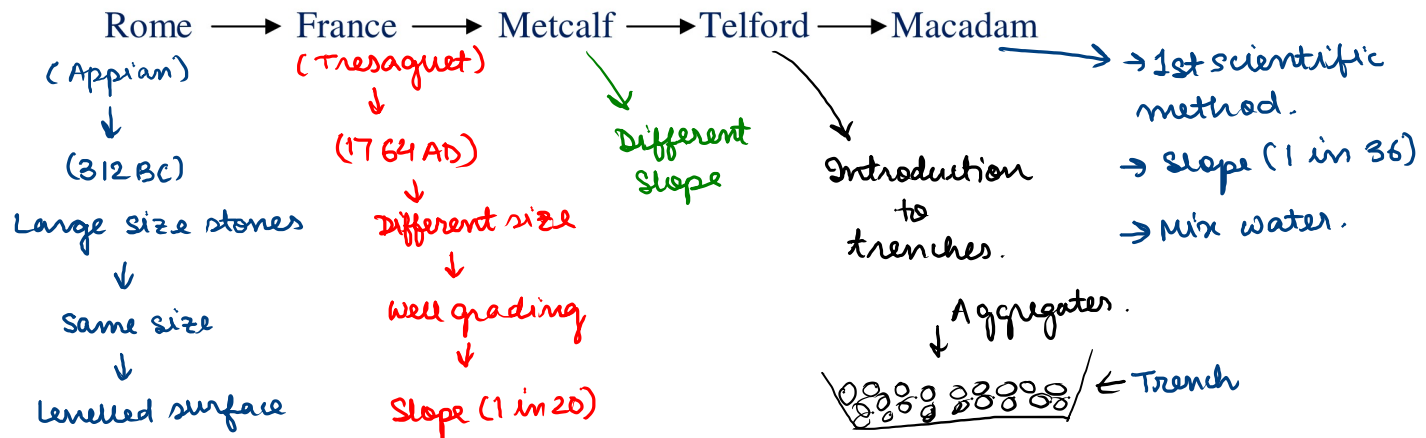 Rome → France → Metcalf → Telford → Macadam
(Appian)
↓
(312 BC)
Large size stones
↓
Same size
↓
Levelled surface
(Tresaguet)
↓
(1764 AD)
↓
Different size
↓
Well grading
↓
Slope (1 in 20)
Different
Slope
Introduction
to
trenches.
Aggregates.
← Trench
→ 1st scientific
method.
→ Slope (1 in 36)
→ Mix water.